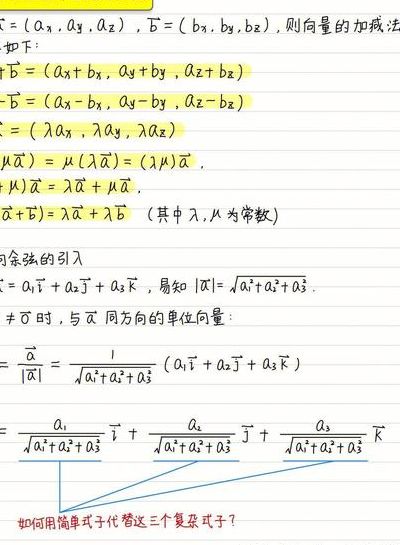 a⃗ = (ax, ay, az), b⃗ = (bx, by, bz), 则向量的加减法
如下:
+b⃗ = (ax+bx, ay+by, az+bz)
-b⃗ = (ax-bx, ay-by, az-bz)
= (λax, λay, λaz)
μa⃗) = μ(λa⃗) = (λμ)a⃗.
+μ)a⃗ = λa⃗ + μa⃗.
a⃗+b⃗) = λa⃗ + λb⃗ (其中λ, μ为常数)
向余弦的引入
= a₁i⃗ + a₂j⃗ + a₃k⃗, 易知 |a⃗| = √(a₁²+a₂²+a₃²).
≠ 0⃗ 时, 与 a⃗ 同方向的单位向量:
= a⃗/|a⃗| = 1/√(a₁²+a₂²+a₃²) (a₁i⃗ + a₂j⃗ + a₃k⃗)
= a₁/√(a₁²+a₂²+a₃²) i⃗ + a₂/√(a₁²+a₂²+a₃²) j⃗ + a₃/√(a₁²+a₂²+a₃²) k⃗
如何用简单式子代替这三个复杂式子?